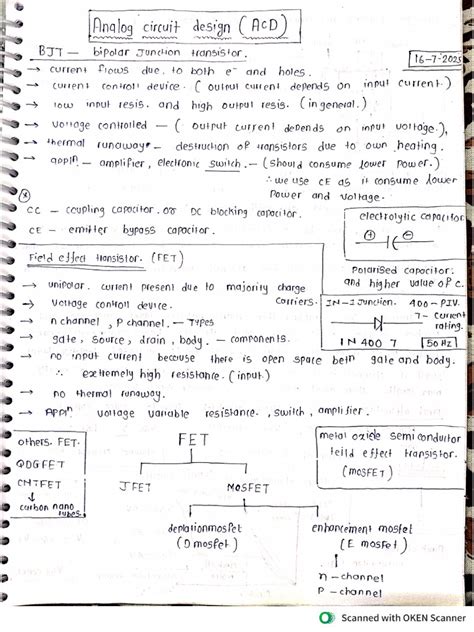 Analog circuit design (ACD)
BJT – bipolar Junction transistor.
16-7-2025
→ current flows due to both e⁻ and holes.
→ current control device. ( output current depends on input current.)
→ low input resis. and high output resis. (in general.)
→ voltage controlled – ( output current depends on input voltage.),
→ thermal runaway – destruction of transistors due to own heating.
→ appln – amplifier, electronic switch. – (should consume lower power.)
∴ we use CE as it consume lower
Power and voltage.
CC – coupling capacitor. or DC blocking capacitor.
CE – emitter bypass capacitor.
electrolytic capacitor
⊕ ⊖
Polarised capacitor.
and higher value of c.
Field effect transistor. (FET)
→ unipolar. current present due to majority charge
carriers.
→ voltage control device.
→ n channel, p channel. – Types
→ gate, source, drain, body. – components.
→ no input current because there is open space betn gate and body.
∴ extremely high resistance. (input)
→ no thermal runaway.
→ Appln voltage variable resistance, switch, amplifier.
IN-1 Junction. 400 – PIV.
7 – current
rating.
IN 400 7
50 Hz
others. FET.
QDGFET
CNTFET
↓
carbon nano
tubes.
FET
JFET
MOSFET
depletionmosfet
(D mosfet)
enhancement mosfet
(E mosfet)
↓
n – channel
p – channel
metal oxide semiconductor
feild effect transistor.
(MOSFET)
Scanned with OKEN Scanner